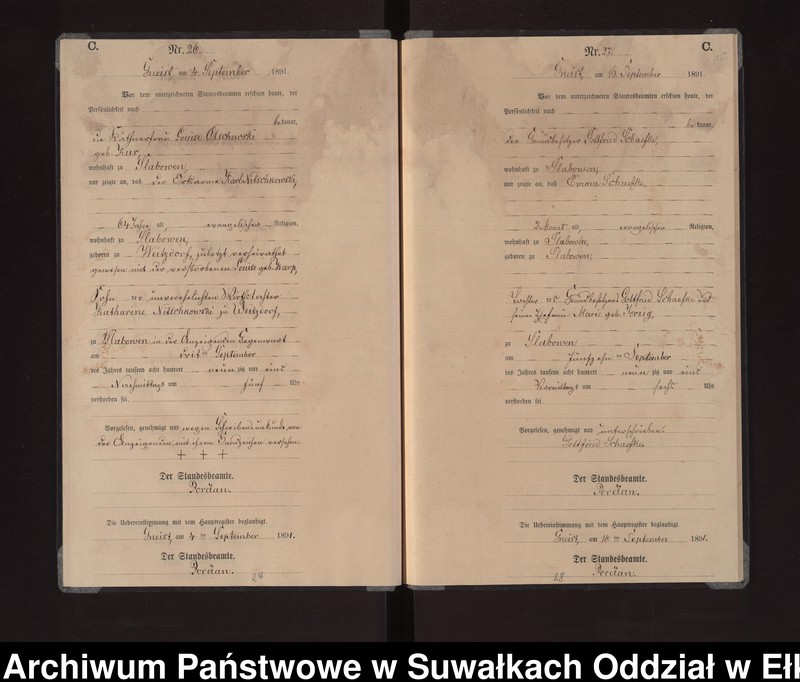 C.
Nr. 26.
Gneist, am 4. September 1891.
Vor dem unterzeichneten Standesbeamten erschien heute, der
Persönlichkeit nach
bekannt,
die Käthnerfrau Louise
geb. Kur,
wohnhaft zu Slabowen,
und zeigte an, daß der Ortsarme Karl Nitschkowski,
64 Jahre alt, evangelischer Religion,
wohnhaft zu Slabowen,
geboren zu Weitzdorf, zuletzt verheirathet
gewesen mit der verstorbenen Louise geb. Karp,
Sohn der unverehelichten Wirthstochter
Katharine Nitschkowski zu Weitzdorf,
zu Slabowen in der Anzeigenden Gegenwart
am dritten September
des Jahres tausend acht hundert neun zig und eins
Nachmittags um fünf Uhr
verstorben sei.
Vorgelesen, genehmigt und wegen Schreibensunkunde von
der Anzeigenden mit ihrem Handzeichen versehen.
+ + +
Der Standesbeamte.
Jordan.
Die Uebereinstimmung mit dem Hauptregister beglaubigt.
Gneist, am 4 ten September 1891.
Der Standesbeamte.
Jordan.
24
C.
Nr. 27.
Gneist, am 16. September 1891.
Vor dem unterzeichneten Standesbeamten erschien heute, der
Persönlichkeit nach
bekannt,
der Grundbesitzer Gottfried Schaefke,
wohnhaft zu Slabowen,
und zeigte an, daß Emma Schaefke,
alt, evangelischer Religion,
wohnhaft zu Slabowen,
geboren zu Slabowen,
Tochter des Grundbesitzers Gottfried Schaefke und
seiner Ehefrau Marie geb.
zu Slabowen
am fünfzehn ten September
des Jahres tausend acht hundert neun zig und eins
Vormittags um sechs Uhr
verstorben sei.
Vorgelesen, genehmigt und unterschrieben.
Gottfried Schaefke
Der Standesbeamte.
Jordan.
Die Uebereinstimmung mit dem Hauptregister beglaubigt.
Gneist, am 16 ten September 1891.
Der Standesbeamte.
Jordan.
Archiwum Państwowe w Suwałkach Oddział w Ełk